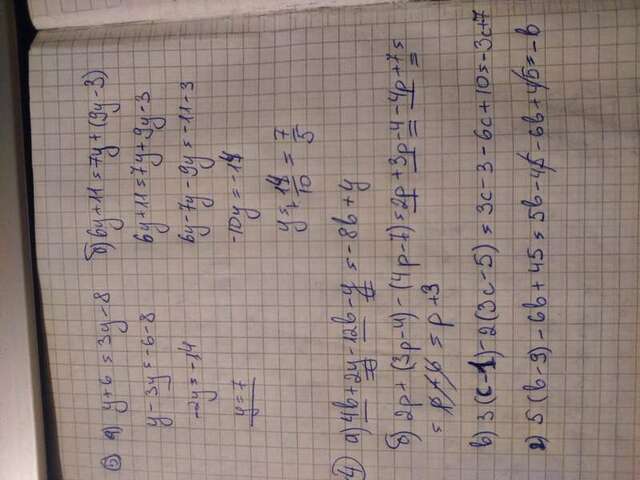 5 а) y+6=3y-8
б) 6y+11=7y+(9y-3)
y-3y=-6-8
6y+11=7y+9y-3
-2y=-14
6y-7y-9y=-11-3
y=7
-10y=-14
y=+14/10=7/5
4 а) 4b+2y-12b-y=-8b+y
б) 2p+(3p-4)-(4p-7)=2p+3p-4-4p+7=
=p+3
в) 3(c-1)-2(3c-5)=3c-3-6c+10=-3c+7
г) 5(b-9)-6b+45=5b-45-6b+45=-b